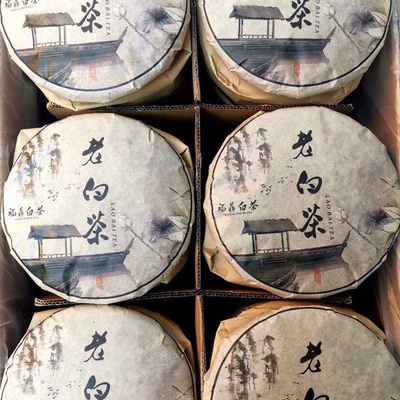 茶
LAO BAI TEA
茶
LAO BAI TEA
老白茶
LAO BAI TEA
福鼎白茶
老白茶
LAO BAI TEA
福鼎白茶
老白
老白